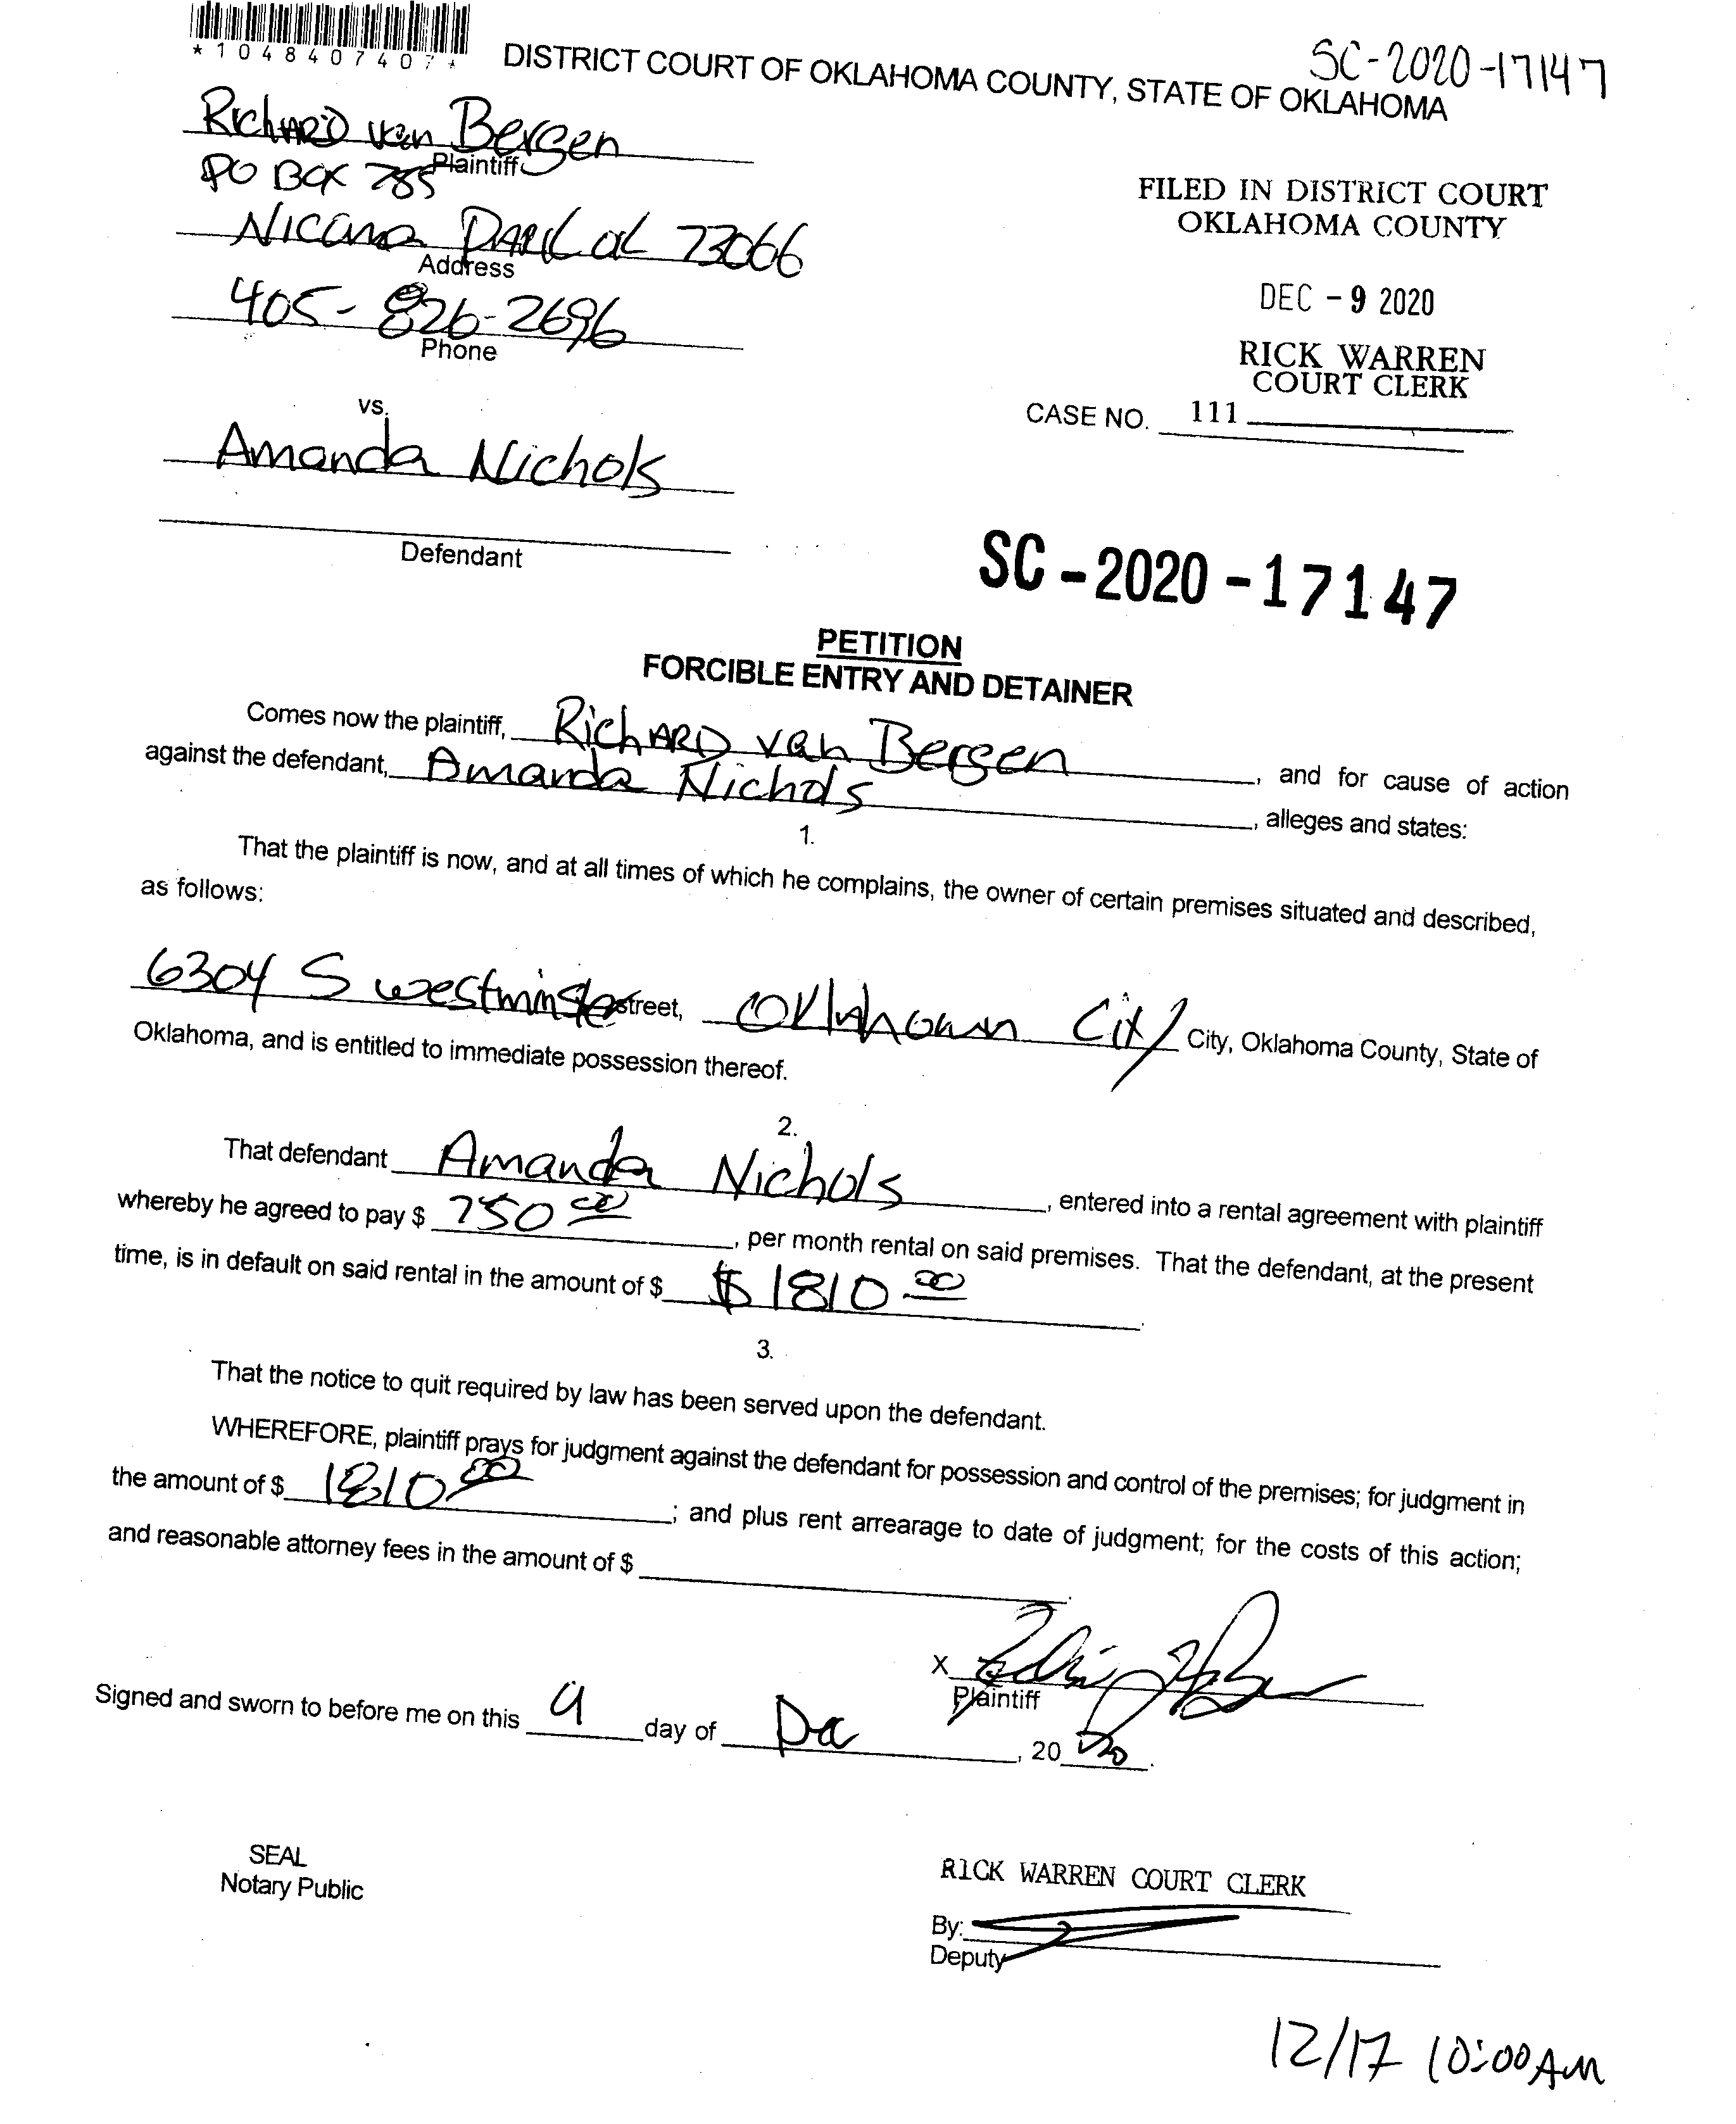 *1048407407*
SC-2020-17147
DISTRICT COURT OF OKLAHOMA COUNTY, STATE OF OKLAHOMA
Richard van Bergen
Plaintiff
PO Box 785
FILED IN DISTRICT COURT
OKLAHOMA COUNTY
73066
Address
DEC - 9 2020
405-826-2696
Phone
RICK WARREN
COURT CLERK
vs.
CASE NO. 111
Amanda Nichols
Defendant
SC-2020-17147
PETITION
FORCIBLE ENTRY AND DETAINER
Comes now the plaintiff, Richard van Bergen, and for cause of action
against the defendant, Amanda Nichols, alleges and states:
1.
That the plaintiff is now, and at all times of which he complains, the owner of certain premises situated and described,
as follows:
6304 S Westminster Street, Oklahoma City City, Oklahoma County, State of
Oklahoma, and is entitled to immediate possession thereof.
2.
That defendant Amanda Nichols, entered into a rental agreement with plaintiff
whereby he agreed to pay $ 750 00, per month rental on said premises. That the defendant, at the present
time, is in default on said rental in the amount of $ $1810 00.
3.
That the notice to quit required by law has been served upon the defendant.
WHEREFORE, plaintiff prays for judgment against the defendant for possession and control of the premises; for judgment in
the amount of $ 1810 00; and plus rent arrearage to date of judgment; for the costs of this action;
and reasonable attorney fees in the amount of $
X
Plaintiff
Signed and sworn to before me on this 9 day of Dec, 20 2020.
SEAL
Notary Public
RICK WARREN COURT CLERK
By:
Deputy
12/17 10:00AM